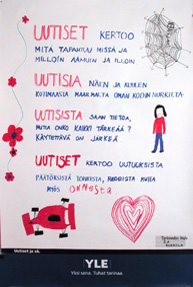 UUTISET KERTOO
MITÄ TAPAHTUU MISSÄ JA
MILLOIN AAMUIN JA ILLOIN
UUTISIA NÄEN JA KUULEN
KOTIMAASTA MAAILMALTA OMAN KODIN NURKILTA.
UUTISISTA SAAN TIETOA,
MUTTA ONKO KAIKKI TÄRKEÄÄ?
KÄYTETTÄVÄ ON JÄRKEÄ
UUTISET KERTOO UUTUUKSISTA
PÄÄTÖKSISTÄ TONNISTA, RUUDISTA MUTTA
MYÖS ONNESTA
Uutiset ja sä.
YLE
Yksi sana. Tuhat tarinaa.